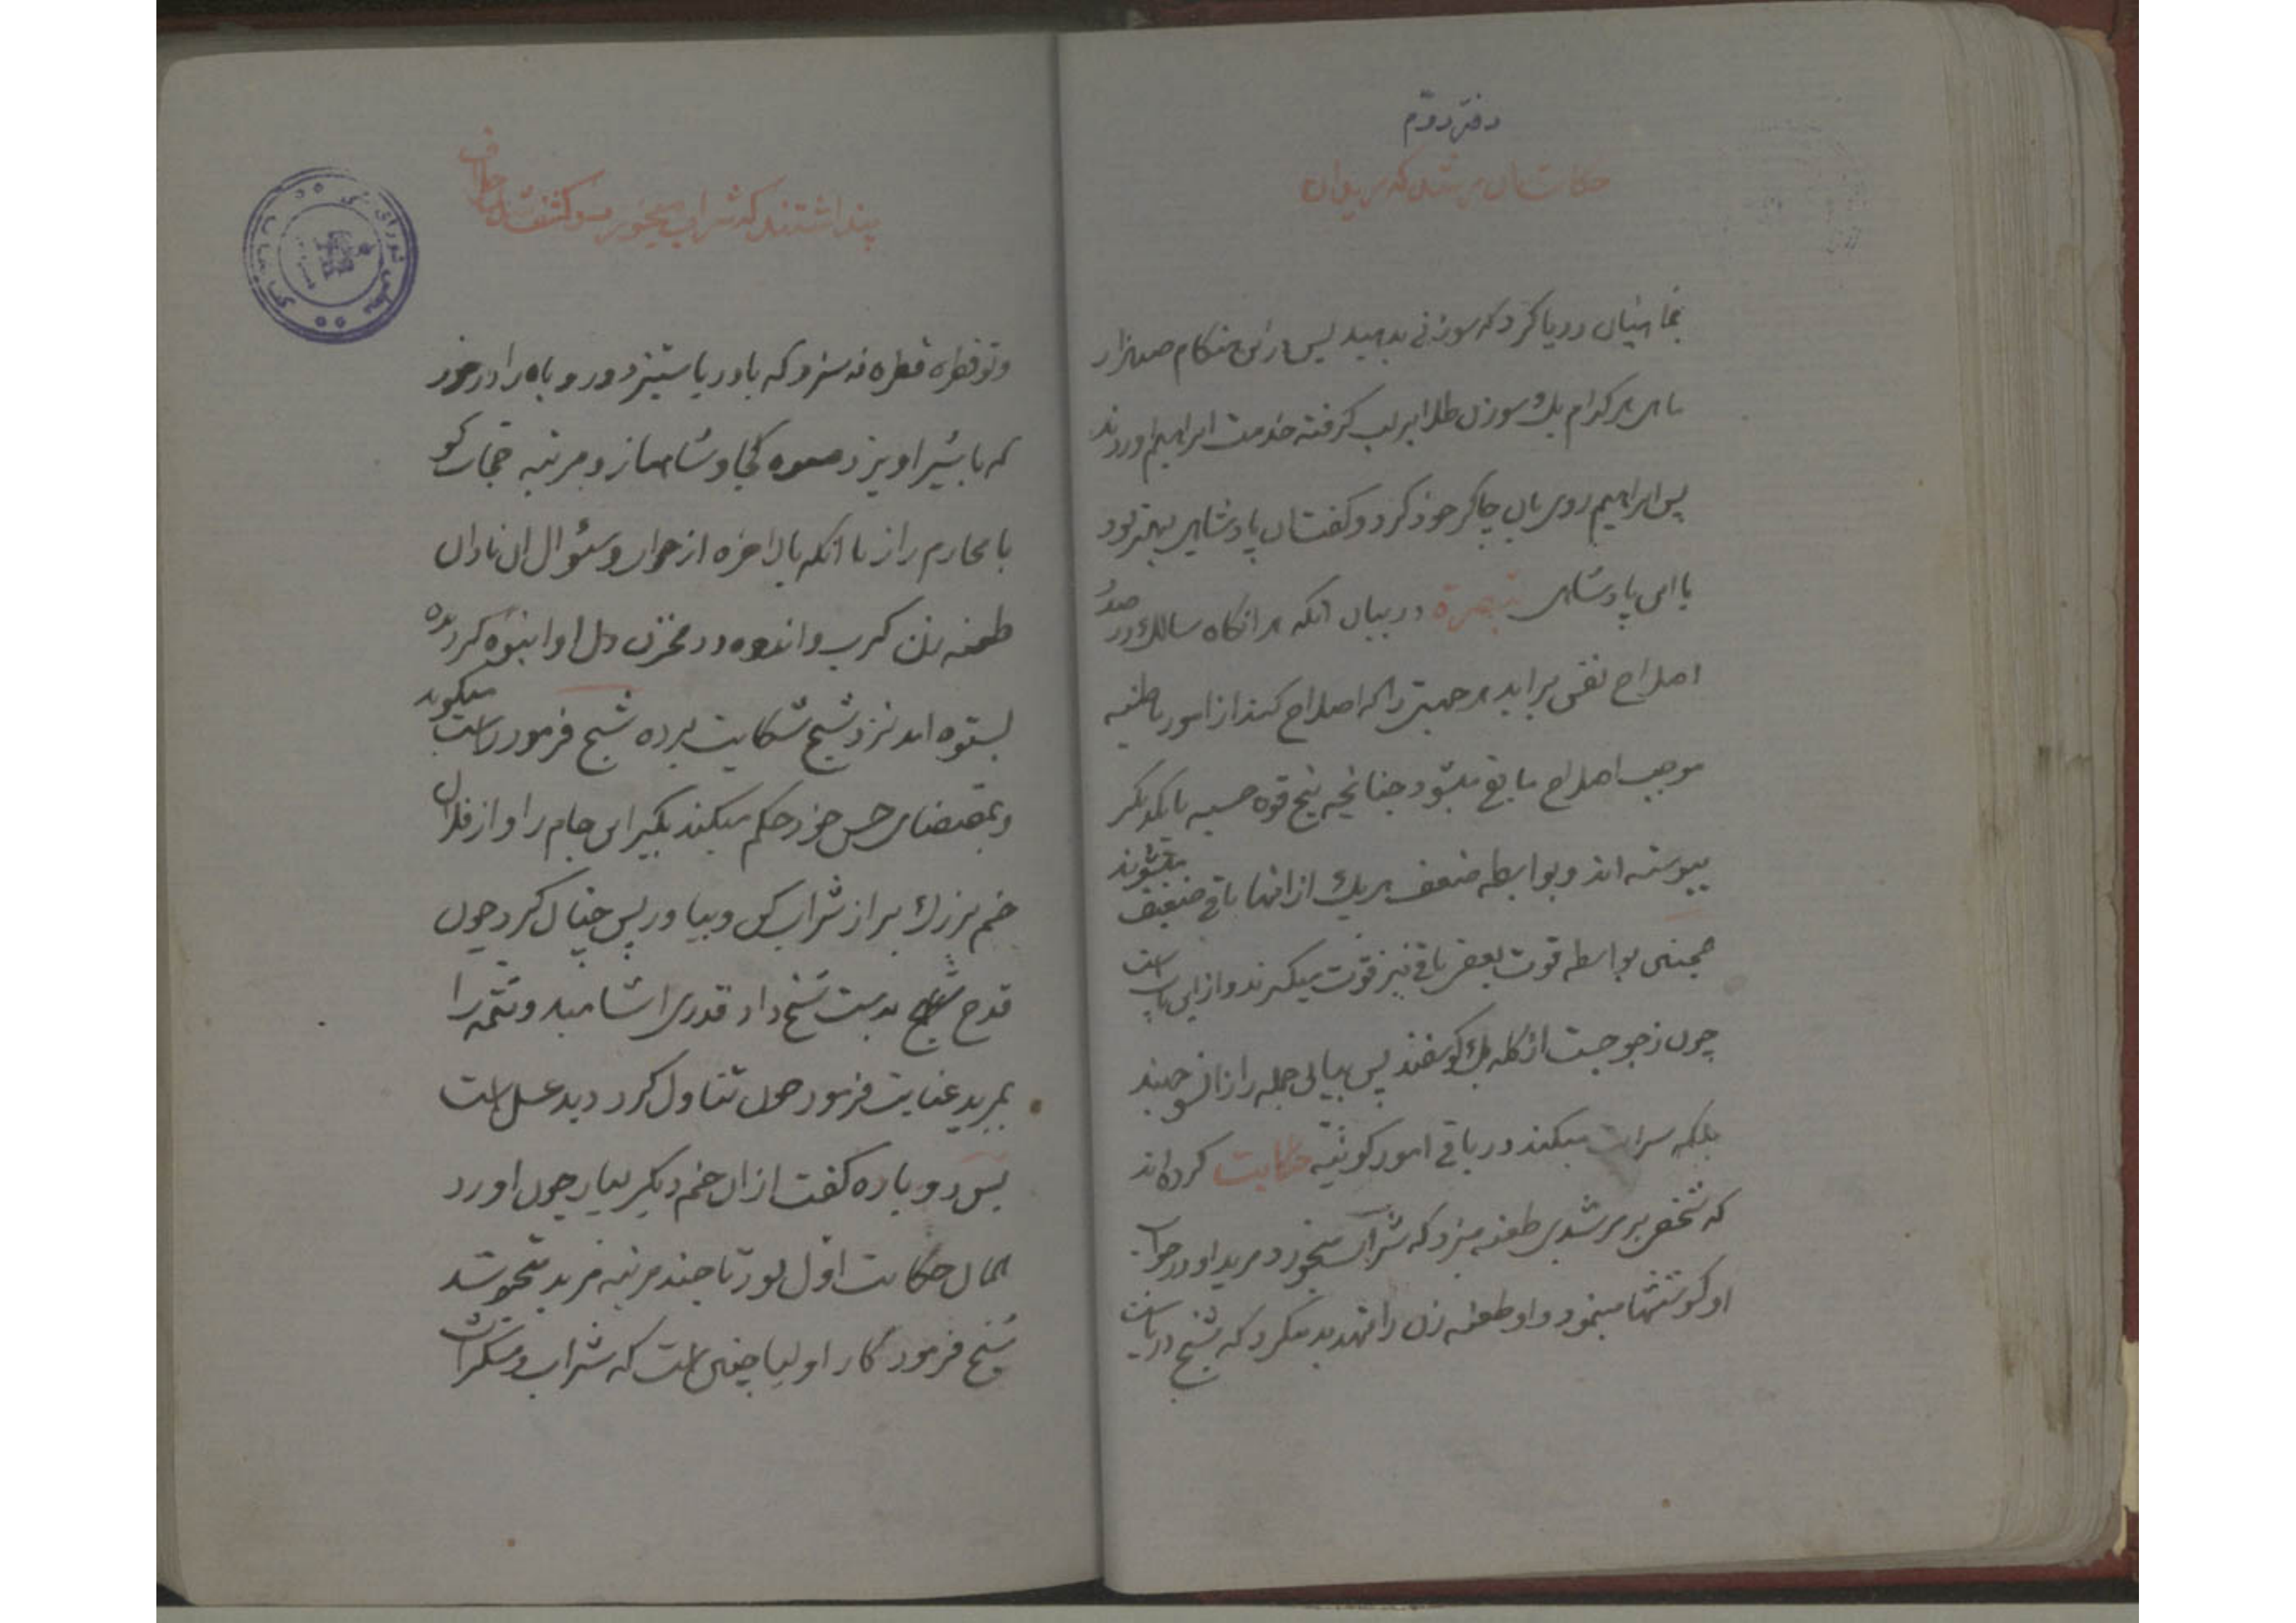 دفتر دوّم
حکایت آن مرشد که مریدان
بماهیان دریا کرد که سوزنی بدهید پس در این هنگام صدهزار
ماهی هر کدام یک سوزن طلا بر لب گرفته خدمت ابراهیم اوردند
پس ابراهیم روی بان چاکر خود کرد و گفت ان پادشاهی بهتر بود
یا این پادشاهی تبصرة در بیان انکه هر انگاه سالک در صدد
اصلاح نفس براید هر جهتی را که اصلاح کند از امور باطنیه
موجب اصلاح مابقی میشود چنانچه پنج قوه حسیه با یکدیگر
پیوسته اند و بواسطه ضعف هر یک از انها باقی ضعیف میشوند
همچنین بواسطه قوت بعضی باقی نیز قوت میگیرند و از این باب است
چون ز جو جست از گله یک گوسفند پس پیاپی جمله زانسو جهند
بلکه سرایت میکند در باقی امور کونیّه حکایت کرده اند
که شخصی بر مرشدی طعنه میزد که شراب میخورد مرید او در جواب
او کوششها مینمود و او طعنه زن را تهدید میکرد که شیخ دریاست
پنداشتند که شراب میخورد و کشف شد خلاف
و تو قطره قطره نه سزد که با دریا ستیزد و روباه را در خور
که با شیر اویزد صعوه کجا و شاهباز و مرتبه حجاز کو
با محارم راز تا انکه بالاخره از جواب و سئوال ان نادان
طعنه زن کرب و اندوه در مخزن دل او انبوه کرد بده
بستوه امد نزد شیخ شکایت برده شیخ فرمود راست میگوید
و بمقتضای حس خود حکم میکند بگیر این جام را و از فلان
خم بزرگ پر از شراب کن و بیاور پس چنان کرد چون
قدح بدست شیخ داد قدری اشامید و تتمّه را
بمرید عنایت فرمود چون تناول کرد دید عسل است
پس دوباره گفت از ان خم دیگر بیار چون اورد
همان حکایت اوّل بود تا چند مرتبه مرید متحیر شد
شیخ فرمود کار اولیا چنین است که شراب و مسکرات